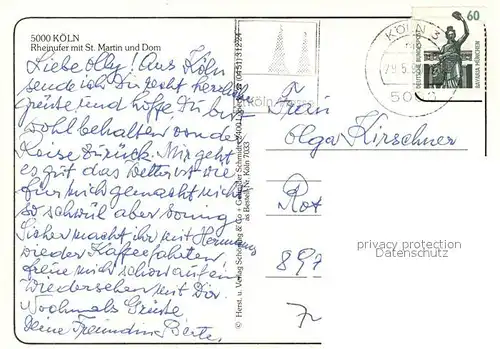 5000 KÖLN
Rheinufer mit St. Martin und Dom
Liebe Olly! Aus Köln
sende ich Dir recht herzliche
Grüsse und hoffe, Du bist
wohlbehalten von der
Reise zurück. Mir geht
es gut das Wetter ist wie
für mich gemacht nicht
so schwül aber sonnig
Sicher macht ihr mit Hermann
wieder Kaffeefahrten,
freue mich schon auf ein
Wiedersehen mit Dir.
Nochmals Grüsse
Deine Freundin Berte.
© Herst. u. Verlag Schöning & Co + Gebrüder Schmidt
Bestell-Nr. Köln 7033
KÖLN 3
50
60
DEUTSCHE BUNDESPOST
BAVARIA MÜNCHEN
Frau
Olga Kirschner
Rot
privacy protection
Datenschutz
897